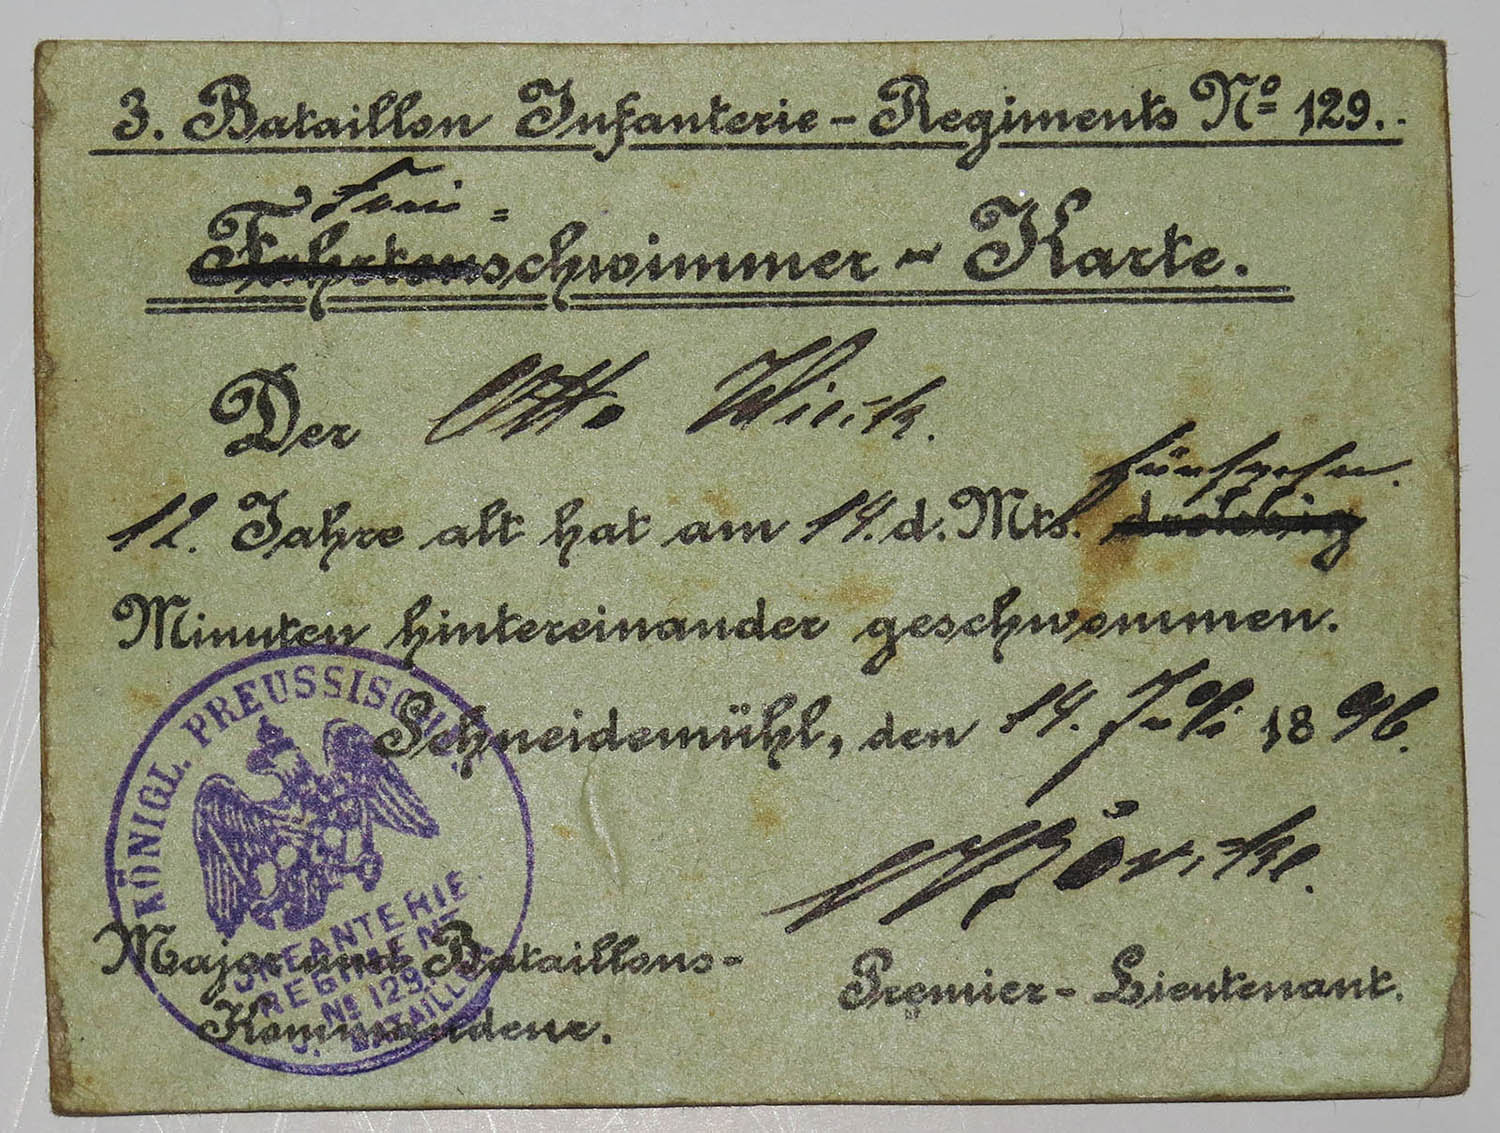 3. Bataillon Infanterie-Regiments No 129.
Frei=
Fahrtenschwimmer-Karte.
Der Otto Wieck.
fünfzehn.
12. Jahre alt hat am 14. d. Mts. dreissig
Minuten hintereinander geschwommen.
Schneidemühl, den 14. Juli 1896.
KÖNIGL. PREUSSISCHES
INFANTERIE
REGIMENT
No 129.
3. BATAILLON
Major und Bataillons-
Kommandeur.
Premier-Lieutenant.